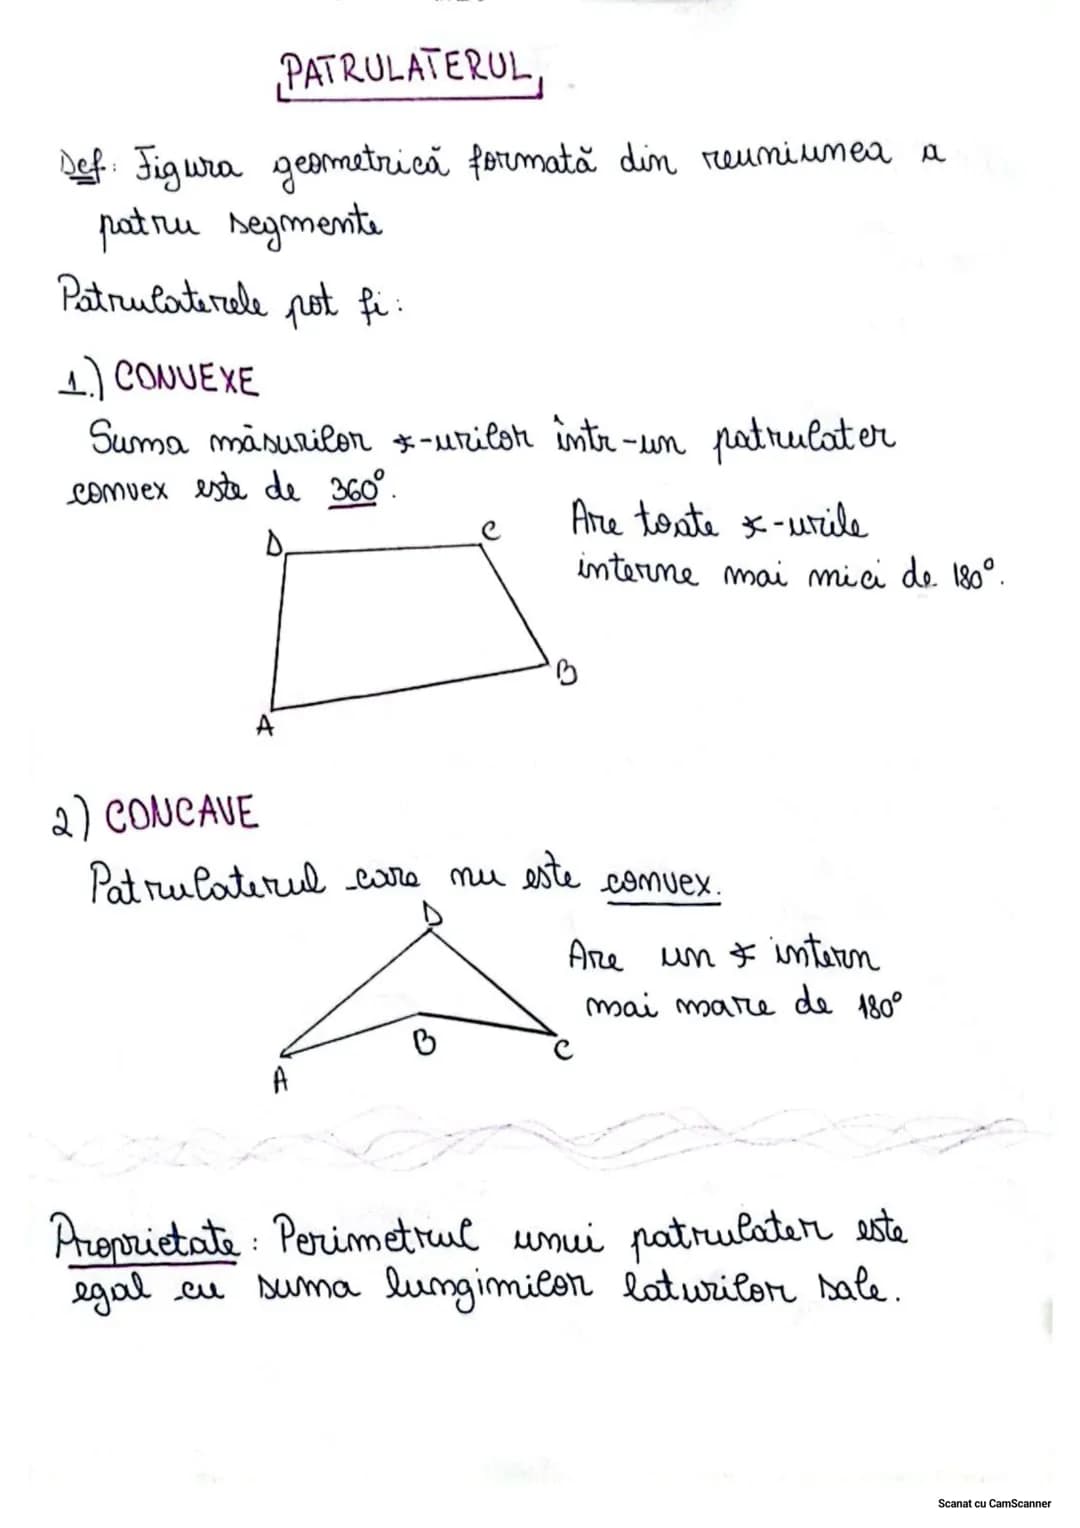 PATRULATERUL
Def: Figura geometrică formată din reuniunea a
patru segmente
Patrulaterele pot fi:
1.) CONVEXE
Suma măsurilor ∢-urilor într-un patrulater
convex este de 360°.
Are toate ∢-urile
interne mai mici de 180°.
D
C
B
A
2) CONCAVE
Patrulaterul care nu este convex.
D
Are un ∢ intern
mai mare de 180°
B
C
A
Proprietate: Perimetrul unui patrulater este
egal cu suma lungimilor laturilor sale.
Scanat cu CamScanner